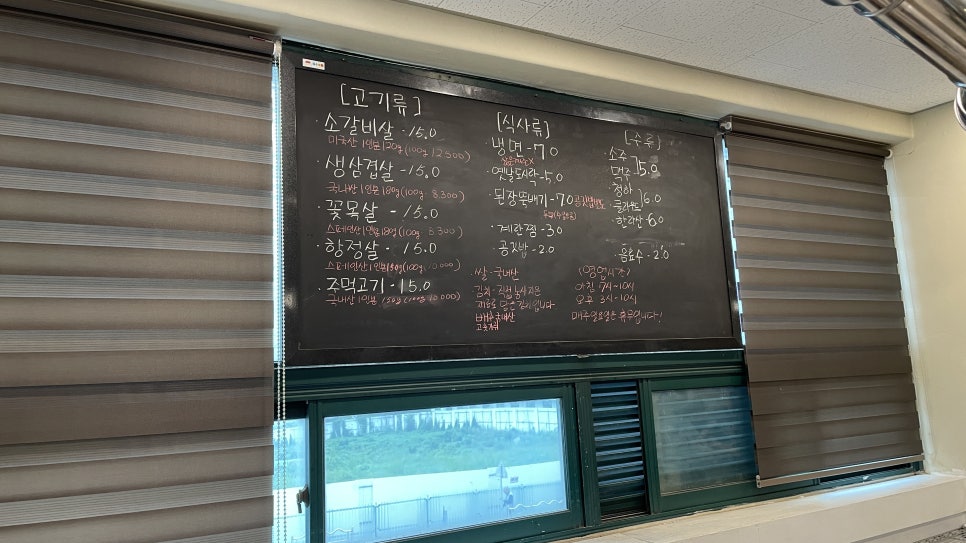 [고기류]
· 소갈비살 - 15.0
미국산 1인분 120g (100g 12,500)
· 생삼겹살 - 15.0
국내산 1인분 180g (100g 8,300)
· 꽃목살 - 15.0
스페인산 1인분 180g (100g 8,300)
· 항정살 - 15.0
스페인산 1인분 150g (100g 10,000)
· 주먹고기 - 15.0
국내산 1인분 150g (100g 10,000)
[식사류]
· 냉면 - 7.0
· 옛날도시락 - 5.0
· 된장뚝배기 - 7.0 공깃밥별도
· 계란찜 - 3.0
· 공깃밥 - 2.0
· 쌀 · 국내산
김치 · 직접 농사지은
재료로 담은 김치입니다
배추 국내산
[주류]
· 소주
· 맥주 5.0
· 청하
· 클라우드 6.0
· 한라산 6.0
· 음료수 - 2.0
(영업시간)
아침 7시~10시
오후 3시~10시
매주 일요일은 휴무입니다!